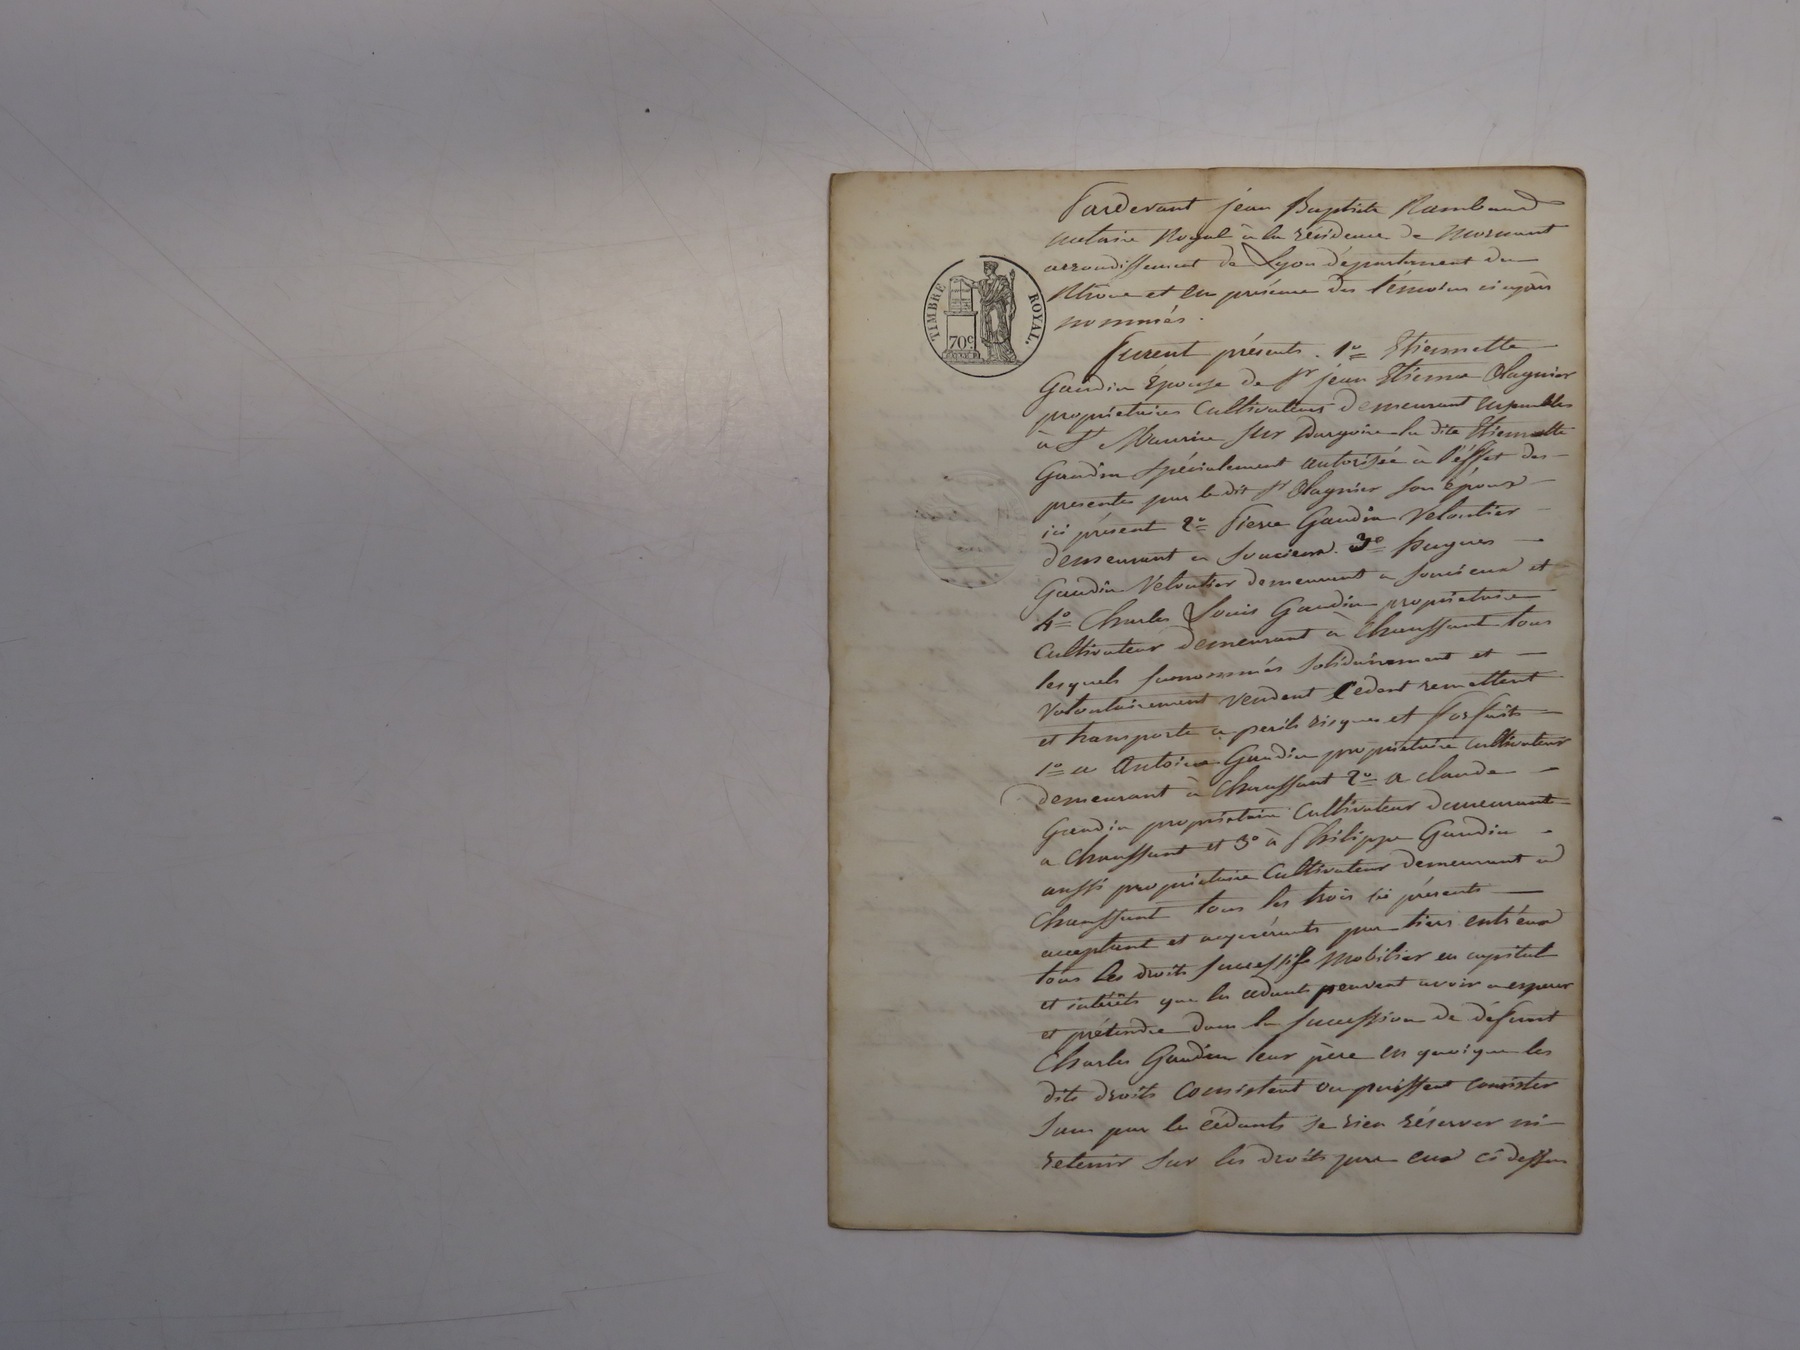 TIMBRE ROYAL.
70c
Pardevant jean Baptiste Rambaud
notaire Royal à la résidence de Mornant
arrondissement de Lyon département du
Rhone et en présence des témoins ci après
nommés.
furent présents. 1º Etiennette
Gaudin épouse de Sr jean Etienne Olagnier
propriétaires Cultivateurs demeurant ensembles
à St Maurice sur Dargoire la dite Etiennette
Gaudin spécialement autorisée à l'éffet des
presentes par le dit Sr Olagnier son époux
ici présent 2º Pierre Gaudin Veloutier
demeurant a Soucieux. 3º hugues
Gaudin Veloutier demeurant a Soucieux et
4º Charles Louis Gaudin propriétaire
Cultivateur demeurant à Chaussant tous
lesquels surnommés solidairement et
Volontairement vendent Cedent remettent
et transporte a perils risques et forfaits
1º a Antoine Gaudin propriétaire cultivateur
demeurant à Chaussant 2º a claude
Gaudin propriétaire Cultivateur demeurant
a Chaussant et 3º à Philippe Gaudin
aussi propriétaire Cultivateur demeurant a
Chaussant tous les trois ici présents
acceptant et acquérants par tiers entr'eux
tous les droits successifs Mobilier en capital
et intérêts que les cédants peuvent avoir a esperer
et prétendre dans la succession de défunt
Charles Gaudin leur père en quoique les
dits droits consistent ou puissent consister
sans par les cédants se rien réserver ni
retenir sur les droits par eux ci dessus